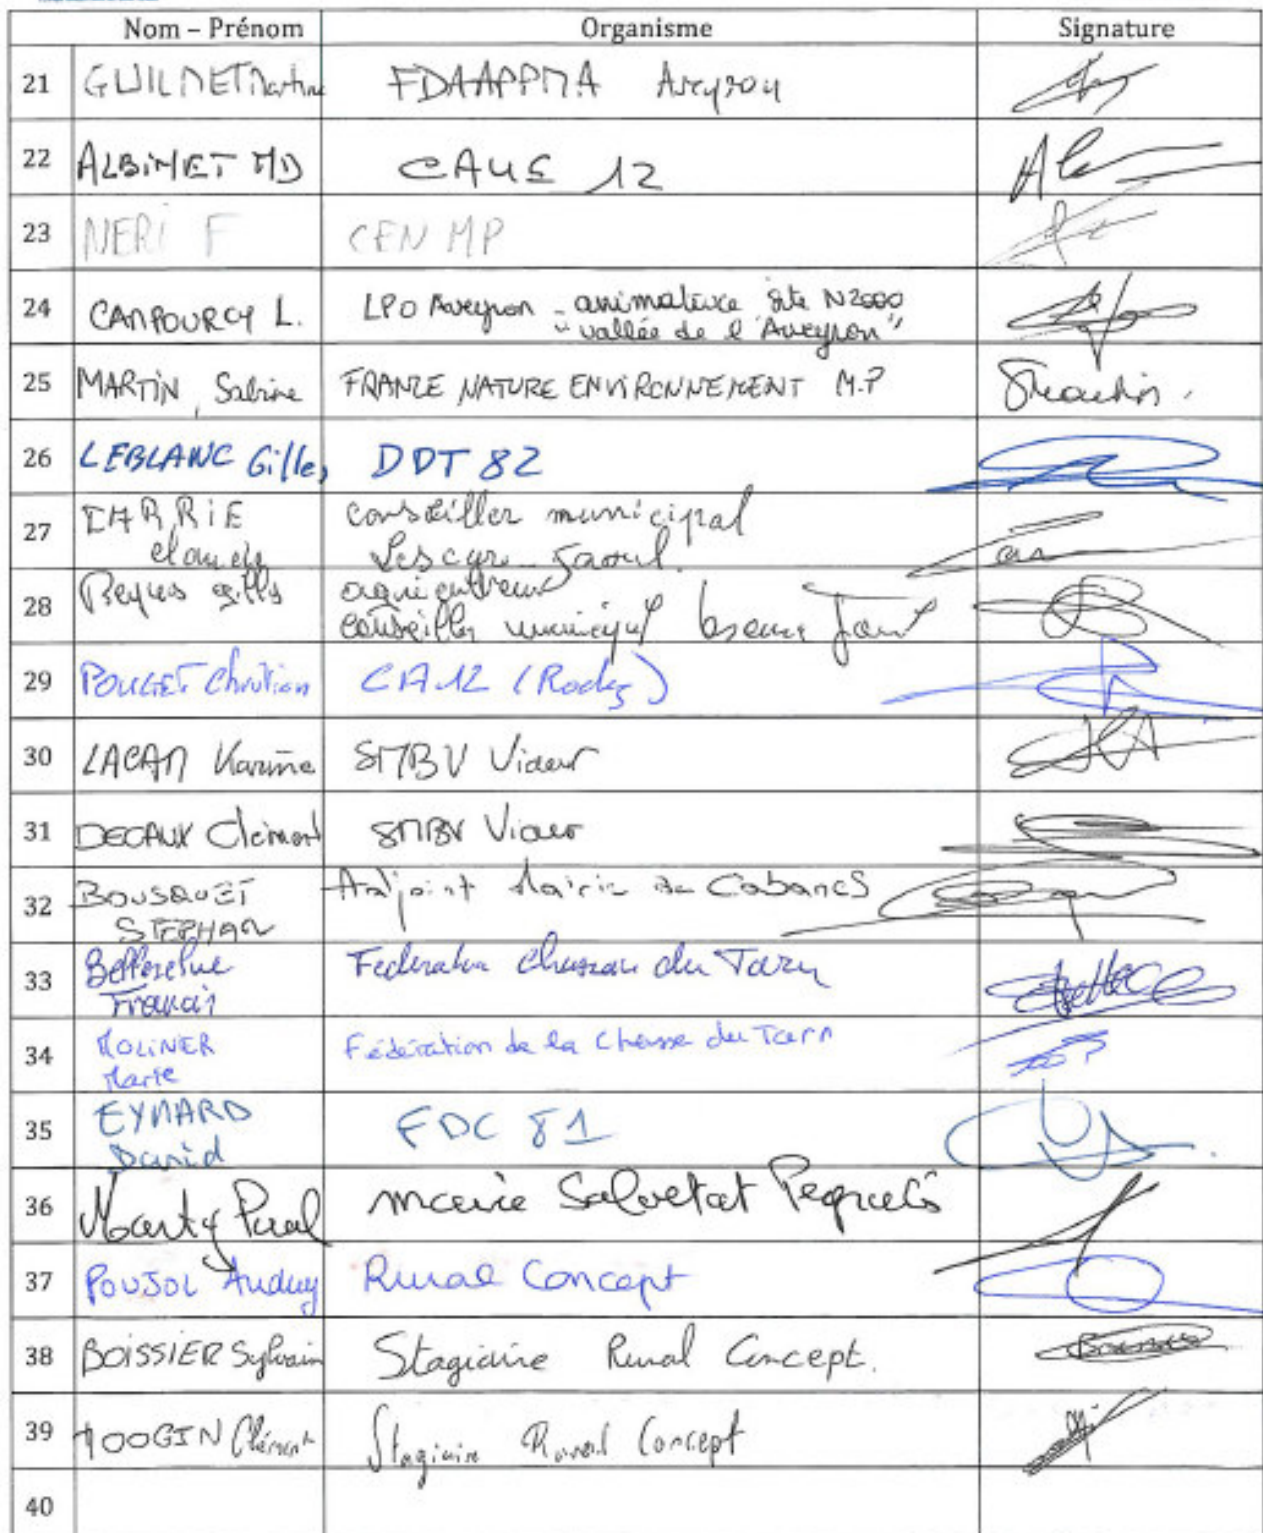 Nom – Prénom Organisme Signature
21 GUILMET Martine FDAAPPMA Aveyron
22 ALBINET MD CAUE 12
23 NERI F CEN MP
24 CAMPOURCY L. LPO Aveyron - animatrice site N2000
"vallée de l'Aveyron"
25 MARTIN, Sabine FRANCE NATURE ENVIRONNEMENT M.P
26 LEBLANC Gilles DDT 82
27 conseiller municipal
28 agriculteur
conseiller municipal
29 POUGET Christian CA12 (Rodez)
30 LACAN Karine SMBV Viaur
31 DECAUX Clément SMBV Viaur
32 BOUSQUET Adjoint Mairie de Cabanes
STEPHAN
33 Federation Chasseur du Tarn
Francis
34 MOLINER Fédération de la Chasse du Tarn
Marie
35 EYMARD FDC 81
David
36 Marty mairie Salvetat Peyralès
37 POUJOL Audrey Rural Concept
38 BOISSIER Sylvain Stagiaire Rural Concept.
39 Clément Stagiaire Rural Concept
40